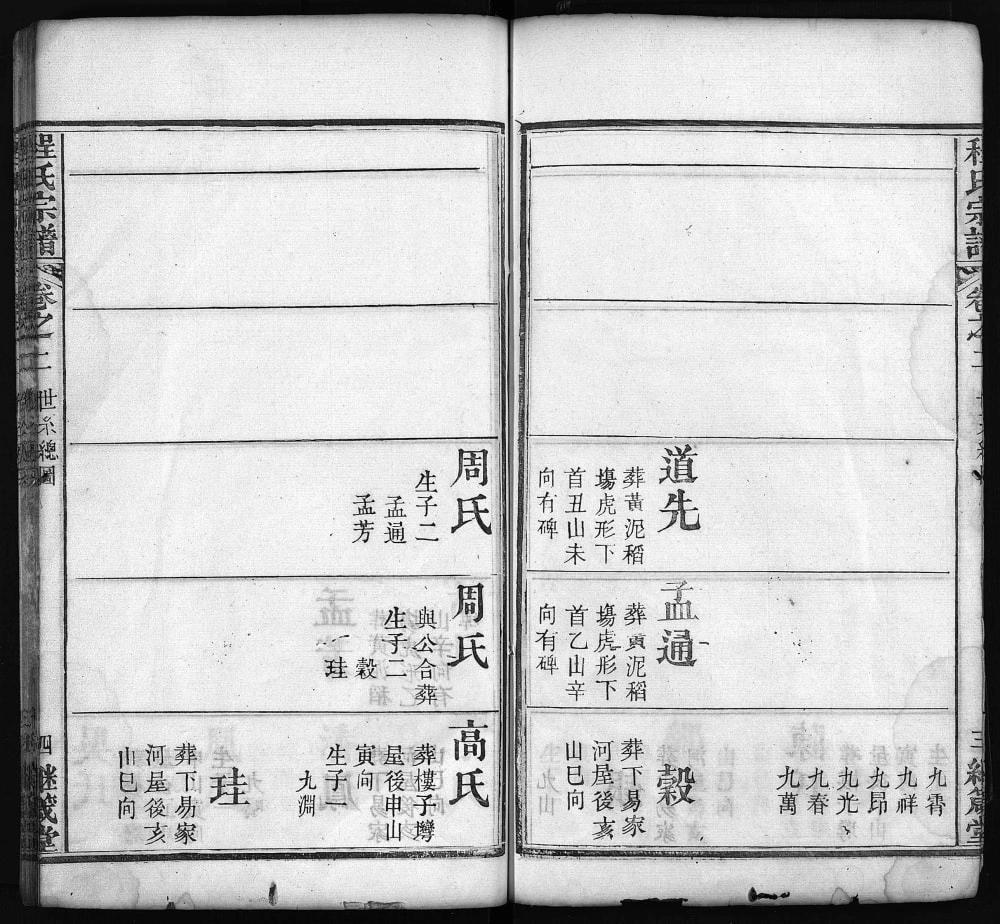 程氏宗譜
卷之二
三
道先
葬黃泥稻
塲虎形下
首丑山未
向有碑
孟通
葬黃泥稻
塲虎形下
首乙山辛
向有碑
九霄
九祥
九昂
九光
九春
九萬
穀
葬下易家
河屋後亥
山巳向
周氏
生子二
孟通
孟芳
周氏
與公合葬
生子二
穀
珪
高氏
葬樓子塆
屋後申山
寅向
生子一
九淵
珪
葬下易家
河屋後亥
山巳向
程氏宗譜
卷之二
世系總圖
四
繼箴堂